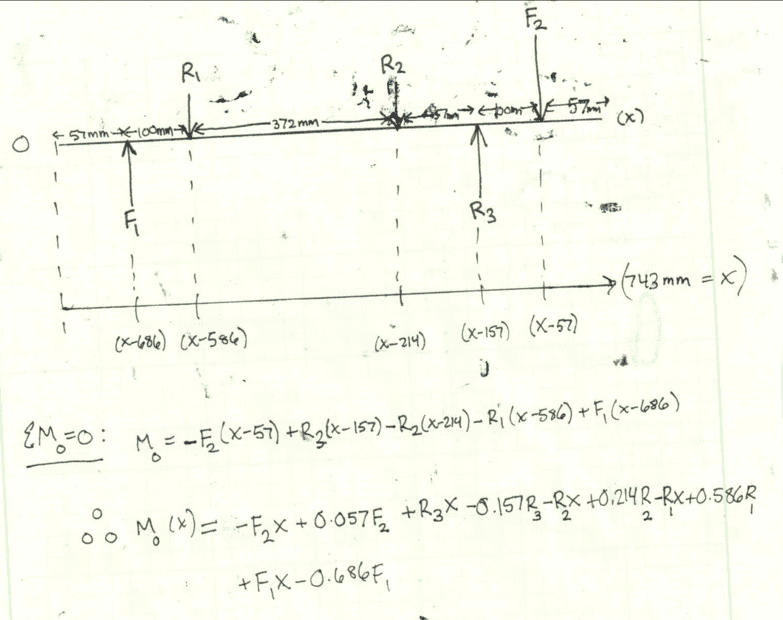 F₂
R₁ R₂
O 57mm 100mm 372mm 57mm 100mm 57mm (x)
F₁ R₃
(743mm = x)
(x-686) (x-586) (x-214) (x-157) (x-57)
ΣM₀=0: M₀ = -F₂(x-57) + R₃(x-157) - R₂(x-214) - R₁(x-586) + F₁(x-686)
∴ M₀(x) = -F₂x + 0.057F₂ + R₃x - 0.157R₃ - R₂x + 0.214R₂ - R₁x + 0.586R₁
+ F₁x - 0.686F₁